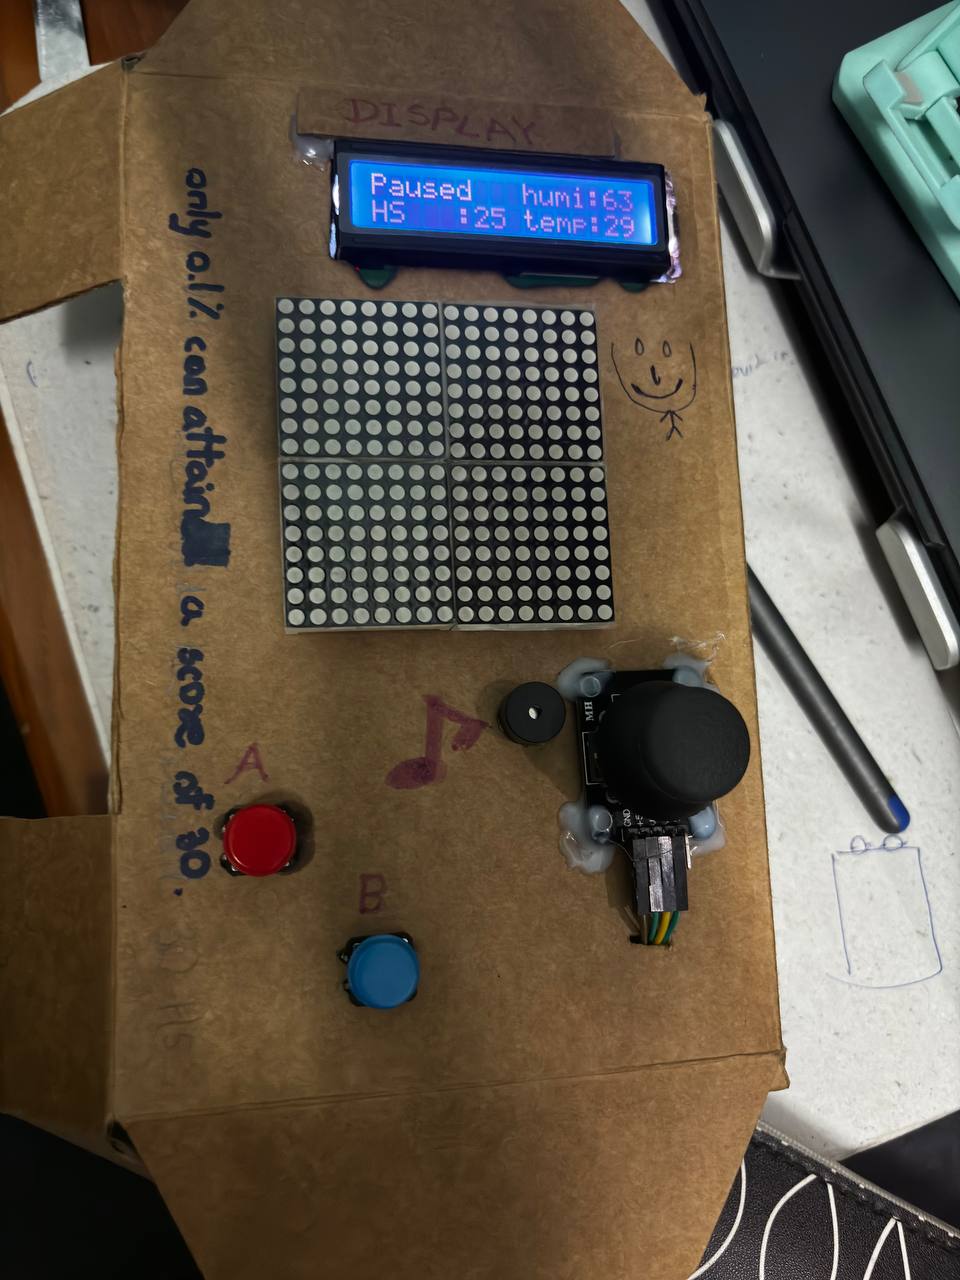 DISPLAY
Paused humi:63
HS :25 temp:29
only 0.1% can attain a score of 30.
MH
GND
+5
A
B